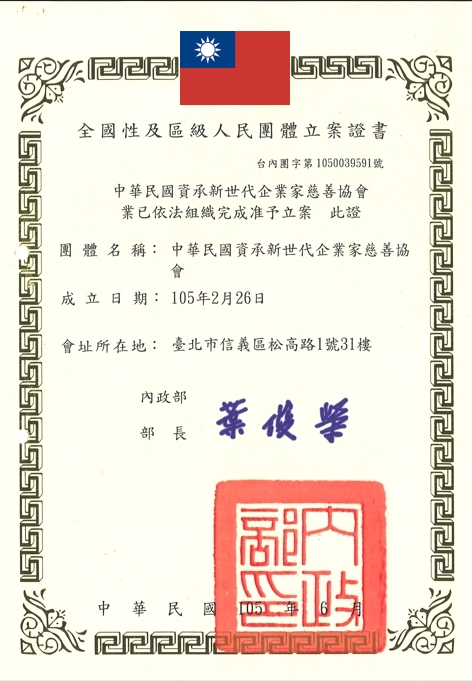 全國性及區級人民團體立案證書
台內團字第1050039591號
中華民國資承新世代企業家慈善協會
業已依法組織完成准予立案 此證
團體名稱：中華民國資承新世代企業家慈善協
會
成立日期：105年2月26日
會址所在地：臺北市信義區松高路1號31樓
內政部
部長 葉俊榮
內政部印
中華民國105年6月